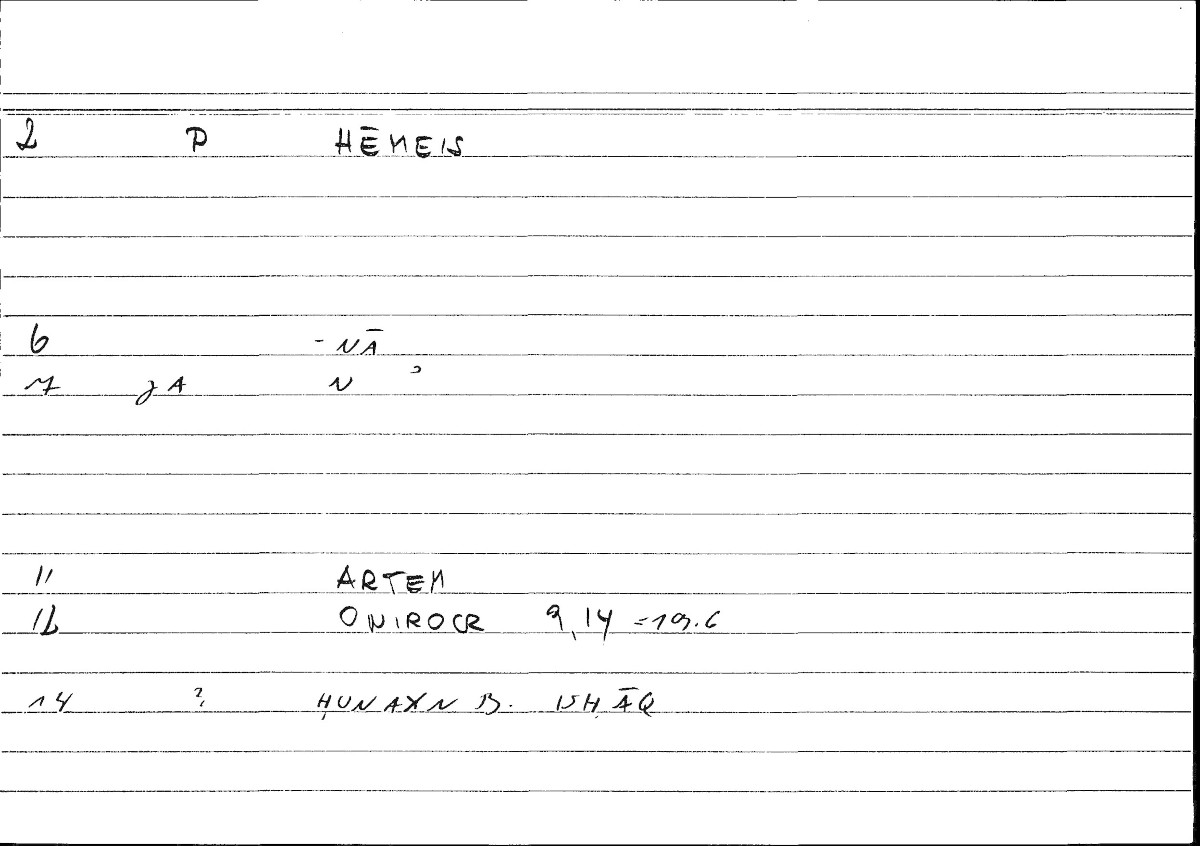 2 P HĒMEIS
6 -NĀ
7 JA N ʾ
11 ARTEM
12 ONIROCR 9,14 =19.6
14 ? ḤUNAYN B. ISḤĀQ